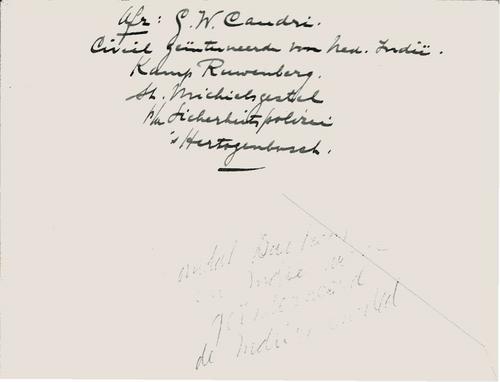 Afz: G.W. Caudri.
Civiel geïnterneerde von Ned. Indië.
Kamp Ruwenberg.
St. Michielsgestel
p/a Sicherheitspolizei
's Hertogenbosch.
Indië
geïnterneerd
de